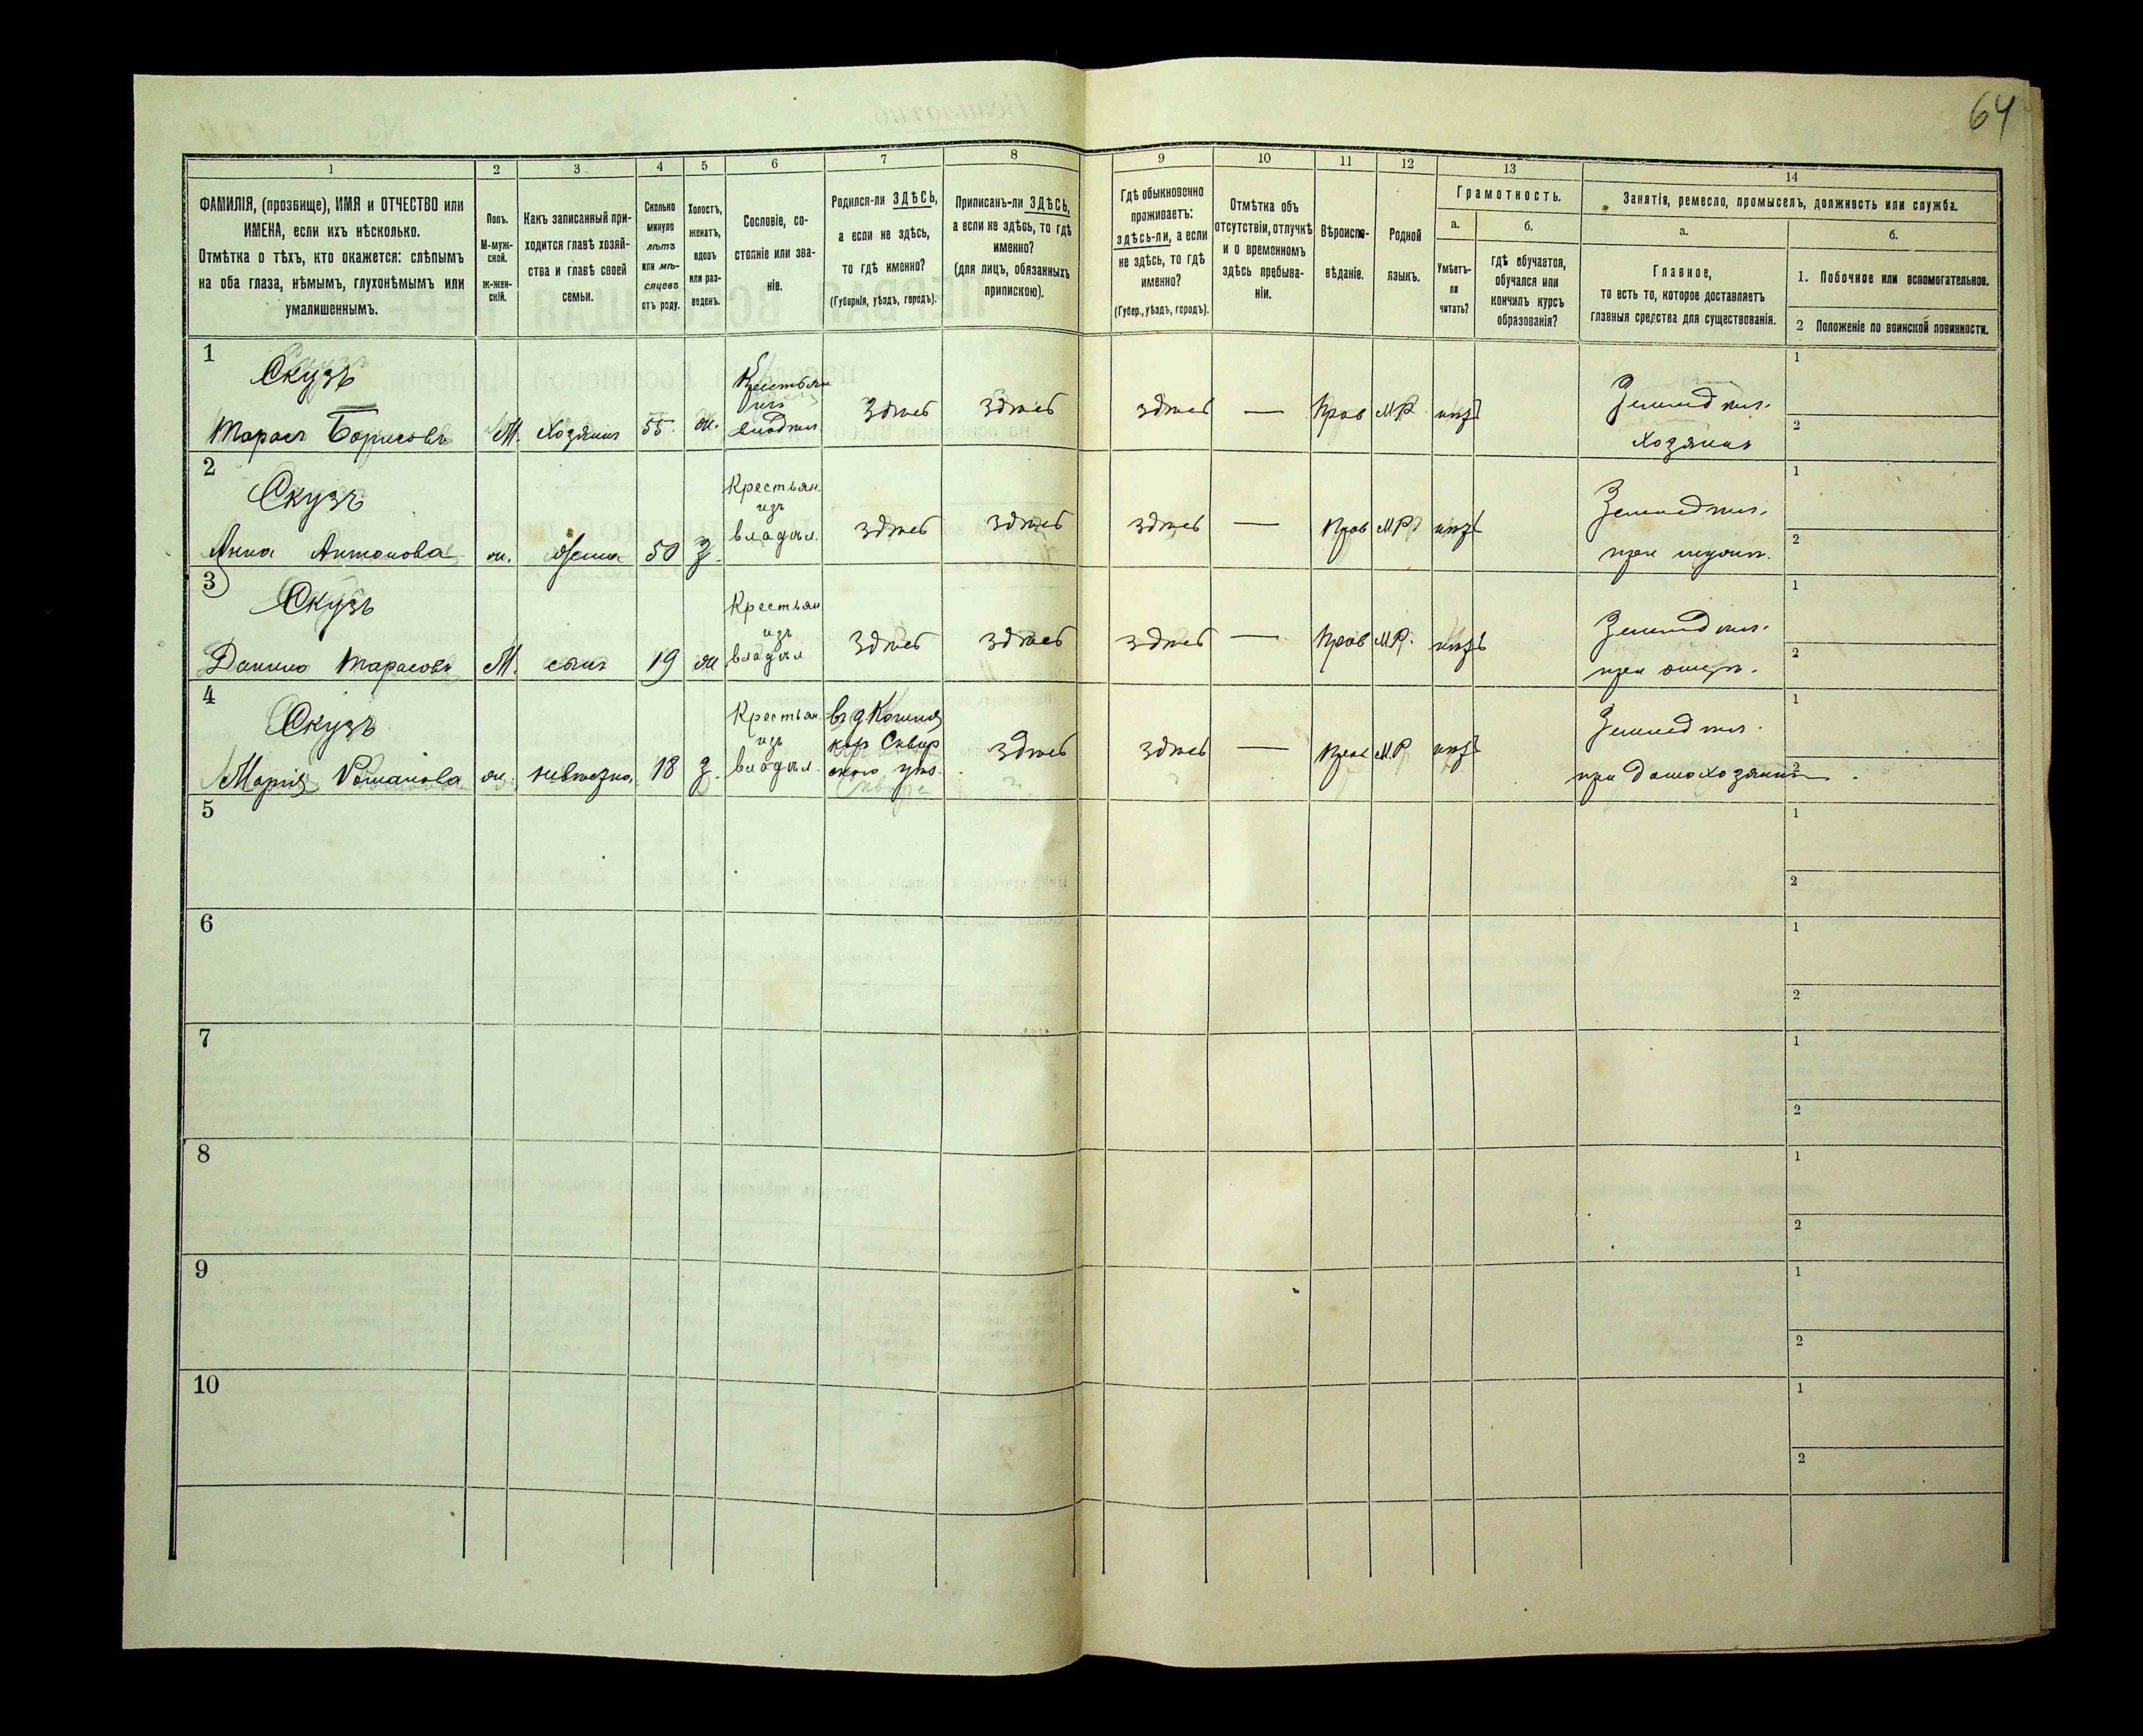 64
1
2
3
4
5
6
7
8
9
10
11
12
13
14
ФАМИЛІЯ, (прозвище), ИМЯ и ОТЧЕСТВО или
ИМЕНА, если ихъ нѣсколько.
Отмѣтка о тѣхъ, кто окажется: слѣпымъ
на оба глаза, нѣмымъ, глухонѣмымъ или
умалишеннымъ.
Полъ.
М-муж-
ской.
Ж-жен-
скій.
Какъ записанный при-
ходится главѣ хозяй-
ства и главѣ своей
семьи.
Сколько
минуло
лѣтъ
или мѣ-
сяцевъ
отъ роду.
Холостъ,
женатъ,
вдовъ
или раз-
веденъ.
Сословіе, со-
стояніе или зва-
ніе.
Родился-ли ЗДѢСЬ,
а если не здѣсь,
то гдѣ именно?
(Губернія, уѣздъ, городъ).
Приписанъ-ли ЗДѢСЬ,
а если не здѣсь, то гдѣ
именно?
(для лицъ, обязанныхъ
припискою).
Гдѣ обыкновенно
проживаетъ:
здѣсь-ли, а если
не здѣсь, то гдѣ
именно?
(Губер., уѣздъ, городъ).
Отмѣтка объ
отсутствіи, отлучкѣ
и о временномъ
здѣсь пребыва-
ніи.
Вѣроиспо-
вѣданіе.
Родной
языкъ.
Грамотность.
а.
Умѣетъ-
ли
читать?
б.
гдѣ обучается,
обучался или
кончилъ курсъ
образованія?
Занятія, ремесло, промыселъ, должность или служба.
а.
Главное,
то есть то, которое доставляетъ
главныя средства для существованія.
б.
1. Побочное или вспомогательное.
2 Положеніе по воинской повинности.
1
Скузъ
Тарасъ Борисовъ
М. Хозяинъ 55 ж.
Крестьян
изъ
владѣл
Здѣсь Здѣсь здѣсь — Прав М.Р. нѣтъ
Земледѣл.
хозяинъ
1
2
2
Скузъ
Анна Антонова
ж. жена 50 З.
Крестьян.
изъ
владѣл.
здѣсь здѣсь здѣсь — Прав М.Р. нѣтъ
Земледѣл.
при мужѣ.
1
2
3
Скузъ
Данило Тарасовъ
М. сынъ 19 ж
Крестьян
изъ
владѣл
здѣсь здѣсь здѣсь — Прав М.Р. нѣтъ
Земледѣл.
при отцѣ.
1
2
4
Скузъ
Марія Романова
ж. невѣстка 18 З.
Крестьян.
изъ
владѣл.
Сквир
ского уѣз.
здѣсь здѣсь — Прав М.Р. нѣтъ
Земледѣл.
при домохозяинѣ
1
2
5
1
2
6
1
2
7
1
2
8
1
2
9
1
2
10
1
2